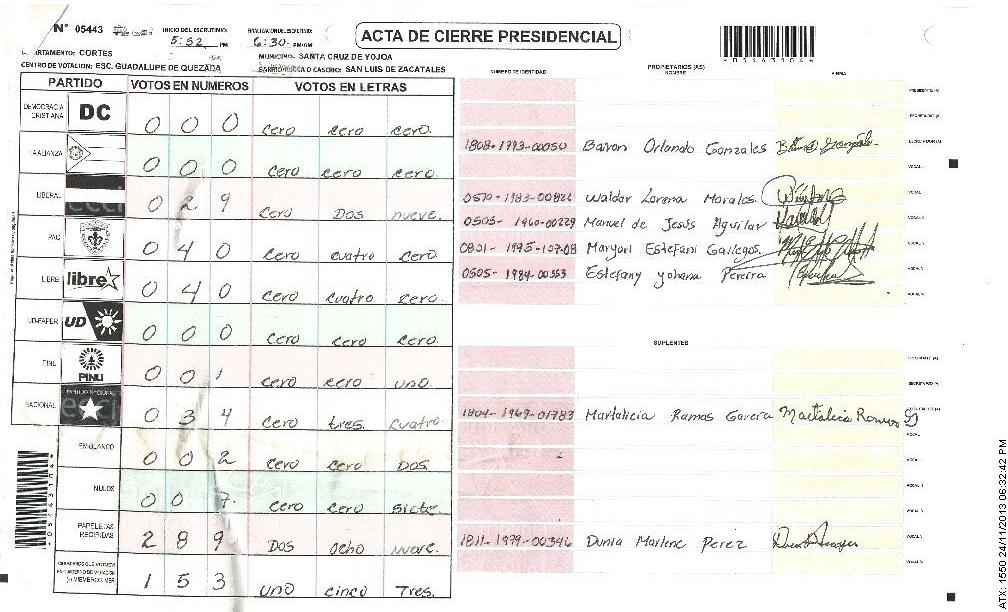 N° 05443
INICIO DEL ESCRUTINIO: 5:52 PM
FINALIZACION DEL ESCRUTINIO: 6:30 PM/AM
ACTA DE CIERRE PRESIDENCIAL
DEPARTAMENTO: CORTES
MUNICIPIO: SANTA CRUZ DE YOJOA
CENTRO DE VOTACION: ESC. GUADALUPE DE QUEZADA
BARRIO/ALDEA O CASERIO: SAN LUIS DE ZACATALES
PARTIDO VOTOS EN NUMEROS VOTOS EN LETRAS
DEMOCRACIA CRISTIANA DC 0 0 0 cero cero cero.
LA ALIANZA 0 0 0 cero cero cero.
LIBERAL 0 2 9 cero Dos nueve.
PAC 0 4 0 cero cuatro cero
LIBRE libre 0 4 0 cero cuatro cero.
UD-FAPER UD 0 0 0 cero cero cero.
PINU PINU 0 0 1 cero cero uno.
NACIONAL PARTIDO NACIONAL 0 3 4 cero tres. cuatro.
EN BLANCO 0 0 2 cero cero Dos
NULOS 0 0 7. cero cero siete.
PAPELETAS RECIBIDAS 2 8 9 Dos ocho nueve.
CIUDADANOS QUE VOTARON 1 5 3 uno cinco Tres.
NUMERO DE IDENTIDAD PROPIETARIOS (AS) NOMBRE FIRMA
PRESIDENTE (A)
SECRETARIO (A)
1808-1993-00050 Bairon Orlando Gonzales ESCRUTADOR (A)
VOCAL I
0510-1983-00826 Waldor Lorena Morales.
0505-1960-00229 Manuel de Jesús Aguilar
0801-1995-10708 Maryori Estefani Gallegos.
0505-1984-00553 Estefany yohana Pereira
SUPLENTES
PRESIDENTE (A)
SECRETARIO (A)
1804-1969-01783 Martalicia Ramos Garcia Martalicia Ramos
1811-1979-00346 Dunia Marlene Perez
*05443104*
ATX: 1550 24/11/2013 06:32:42 PM